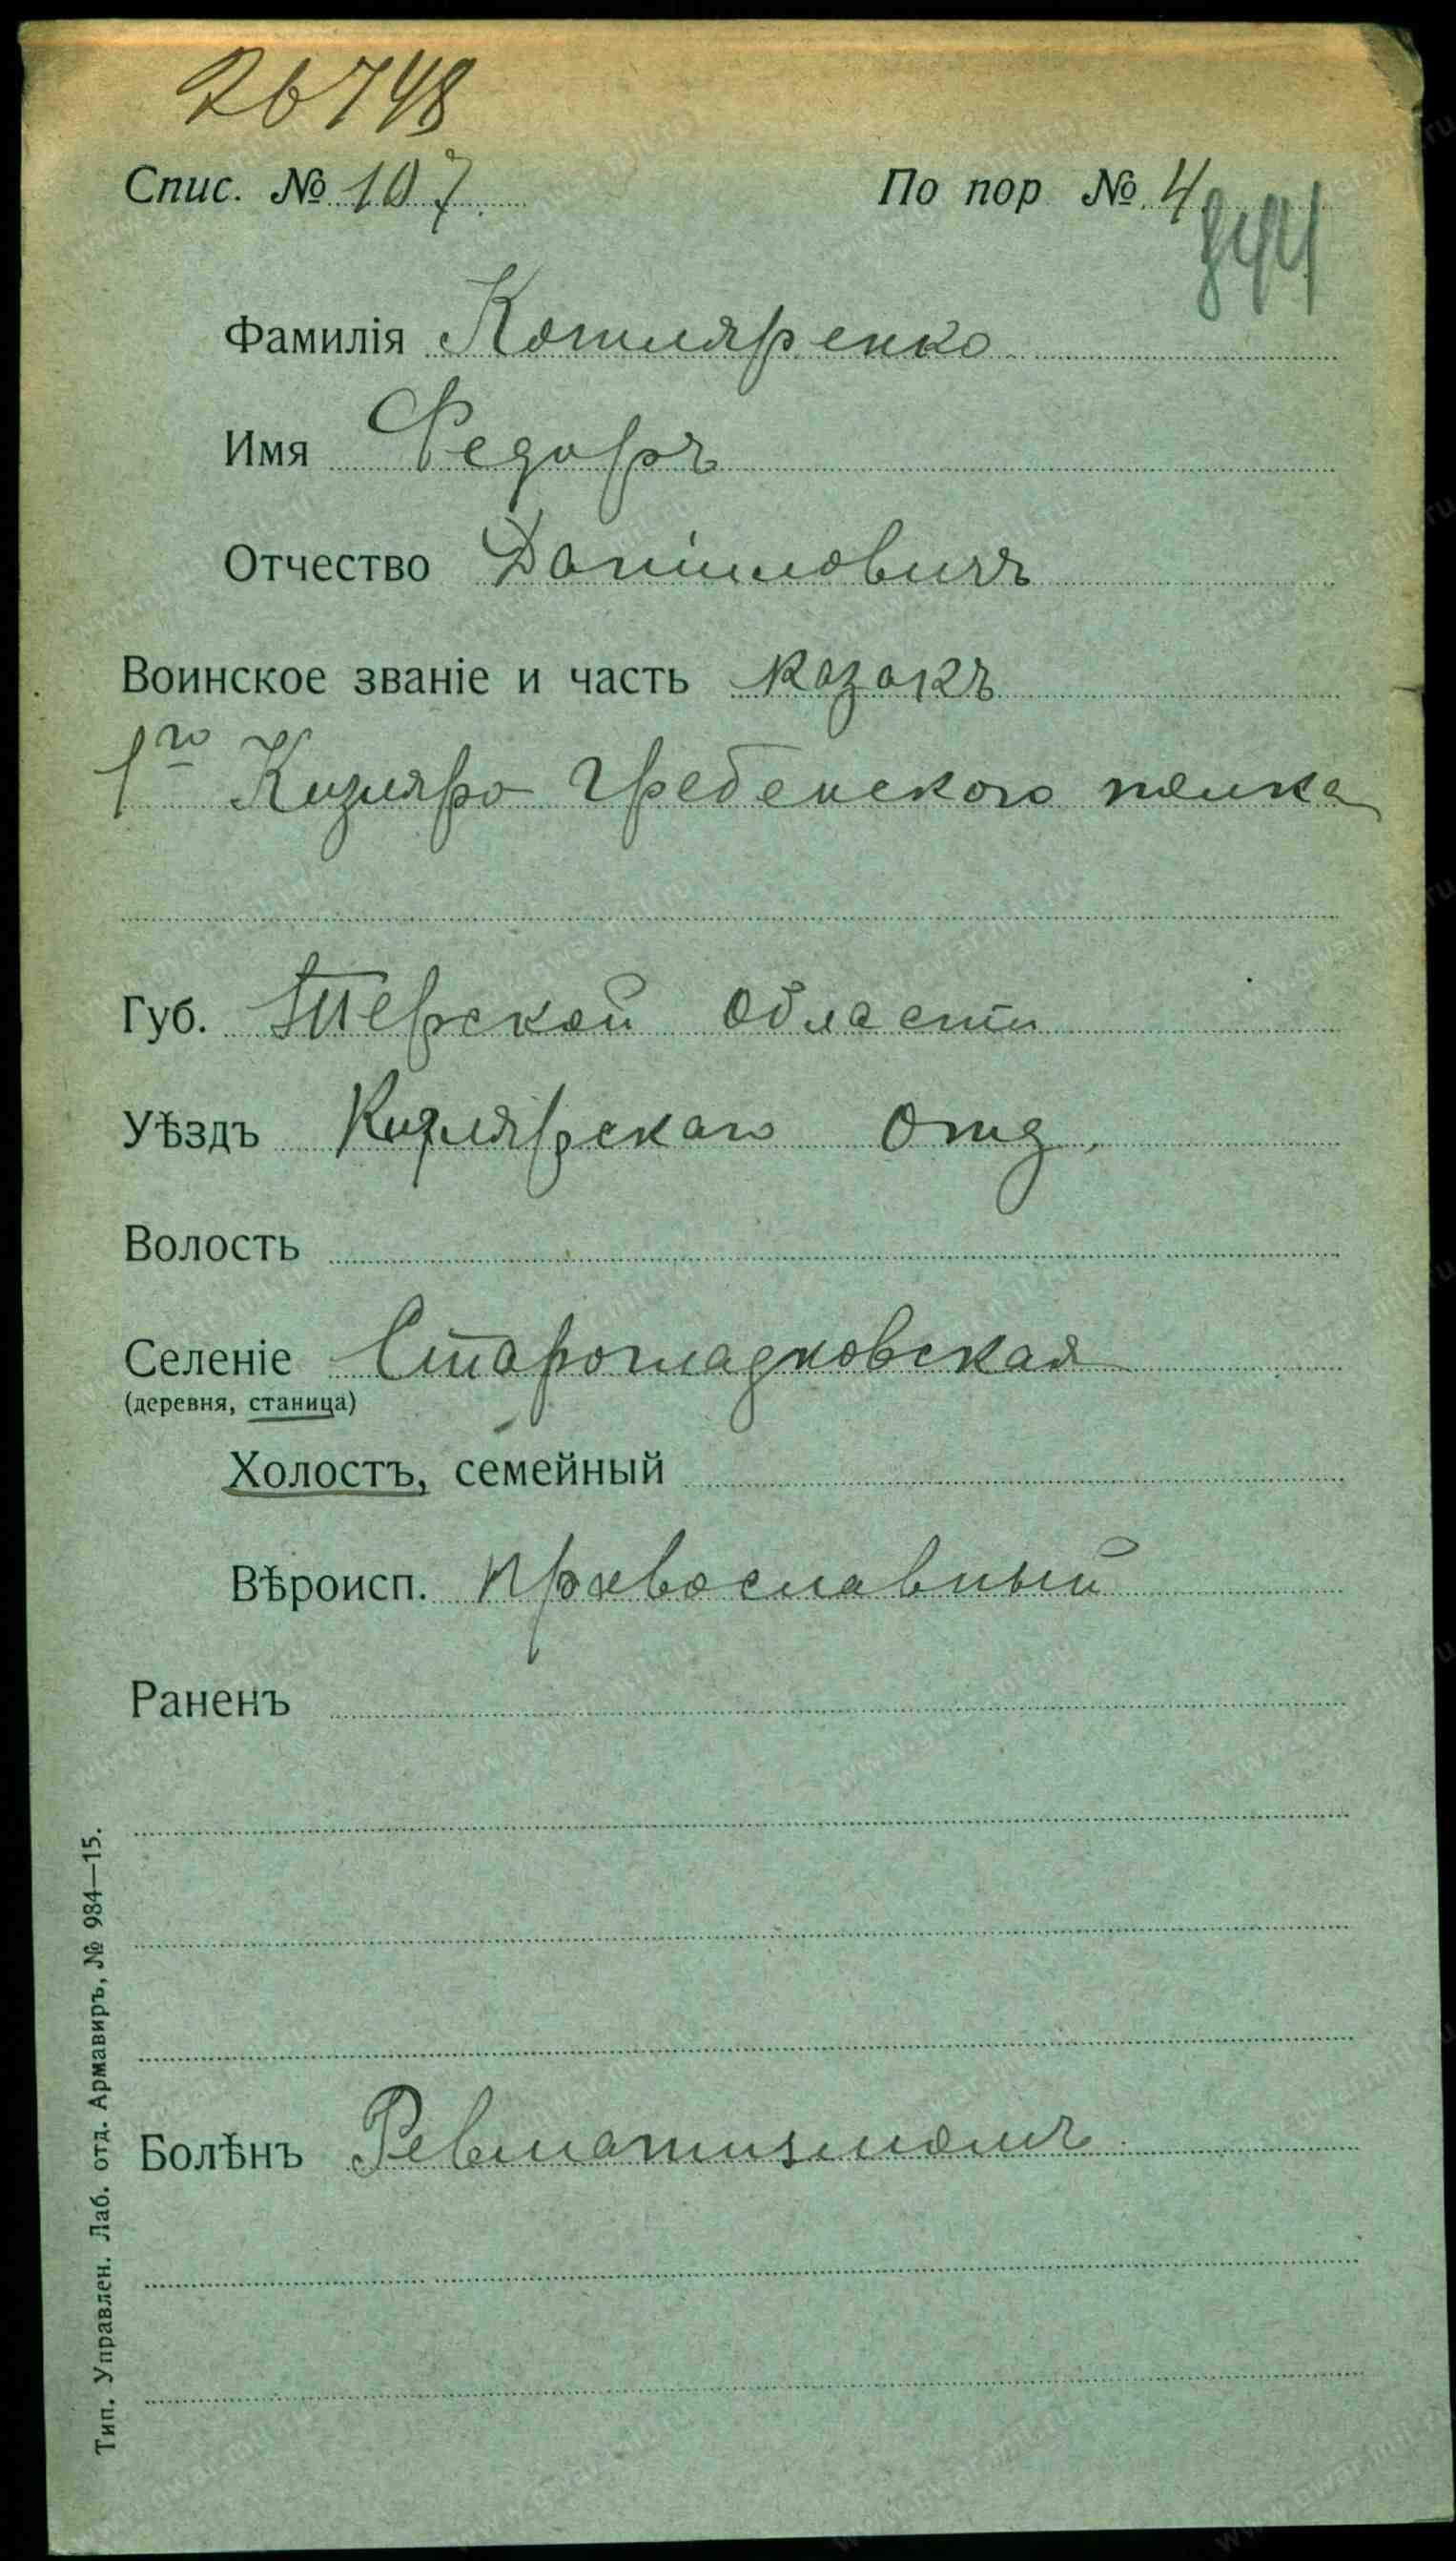 26748
Спис. № 107. По пор № 4
844
Фамилія Котляренко
Имя Федоръ
Отчество Даніиловичъ
Воинское званіе и часть казакъ
1го Кизляро Гребенского полка
Губ. Терской Области
Уѣздъ Кизлярскаго Отд.
Волость
Селеніе Старогладковская
(деревня, станица)
Холостъ, семейный
Вѣроисп. православный
Раненъ
Болѣнъ Ревматизмомъ
Тип. Управлен. Лаб. отд. Армавиръ, № 984—15.